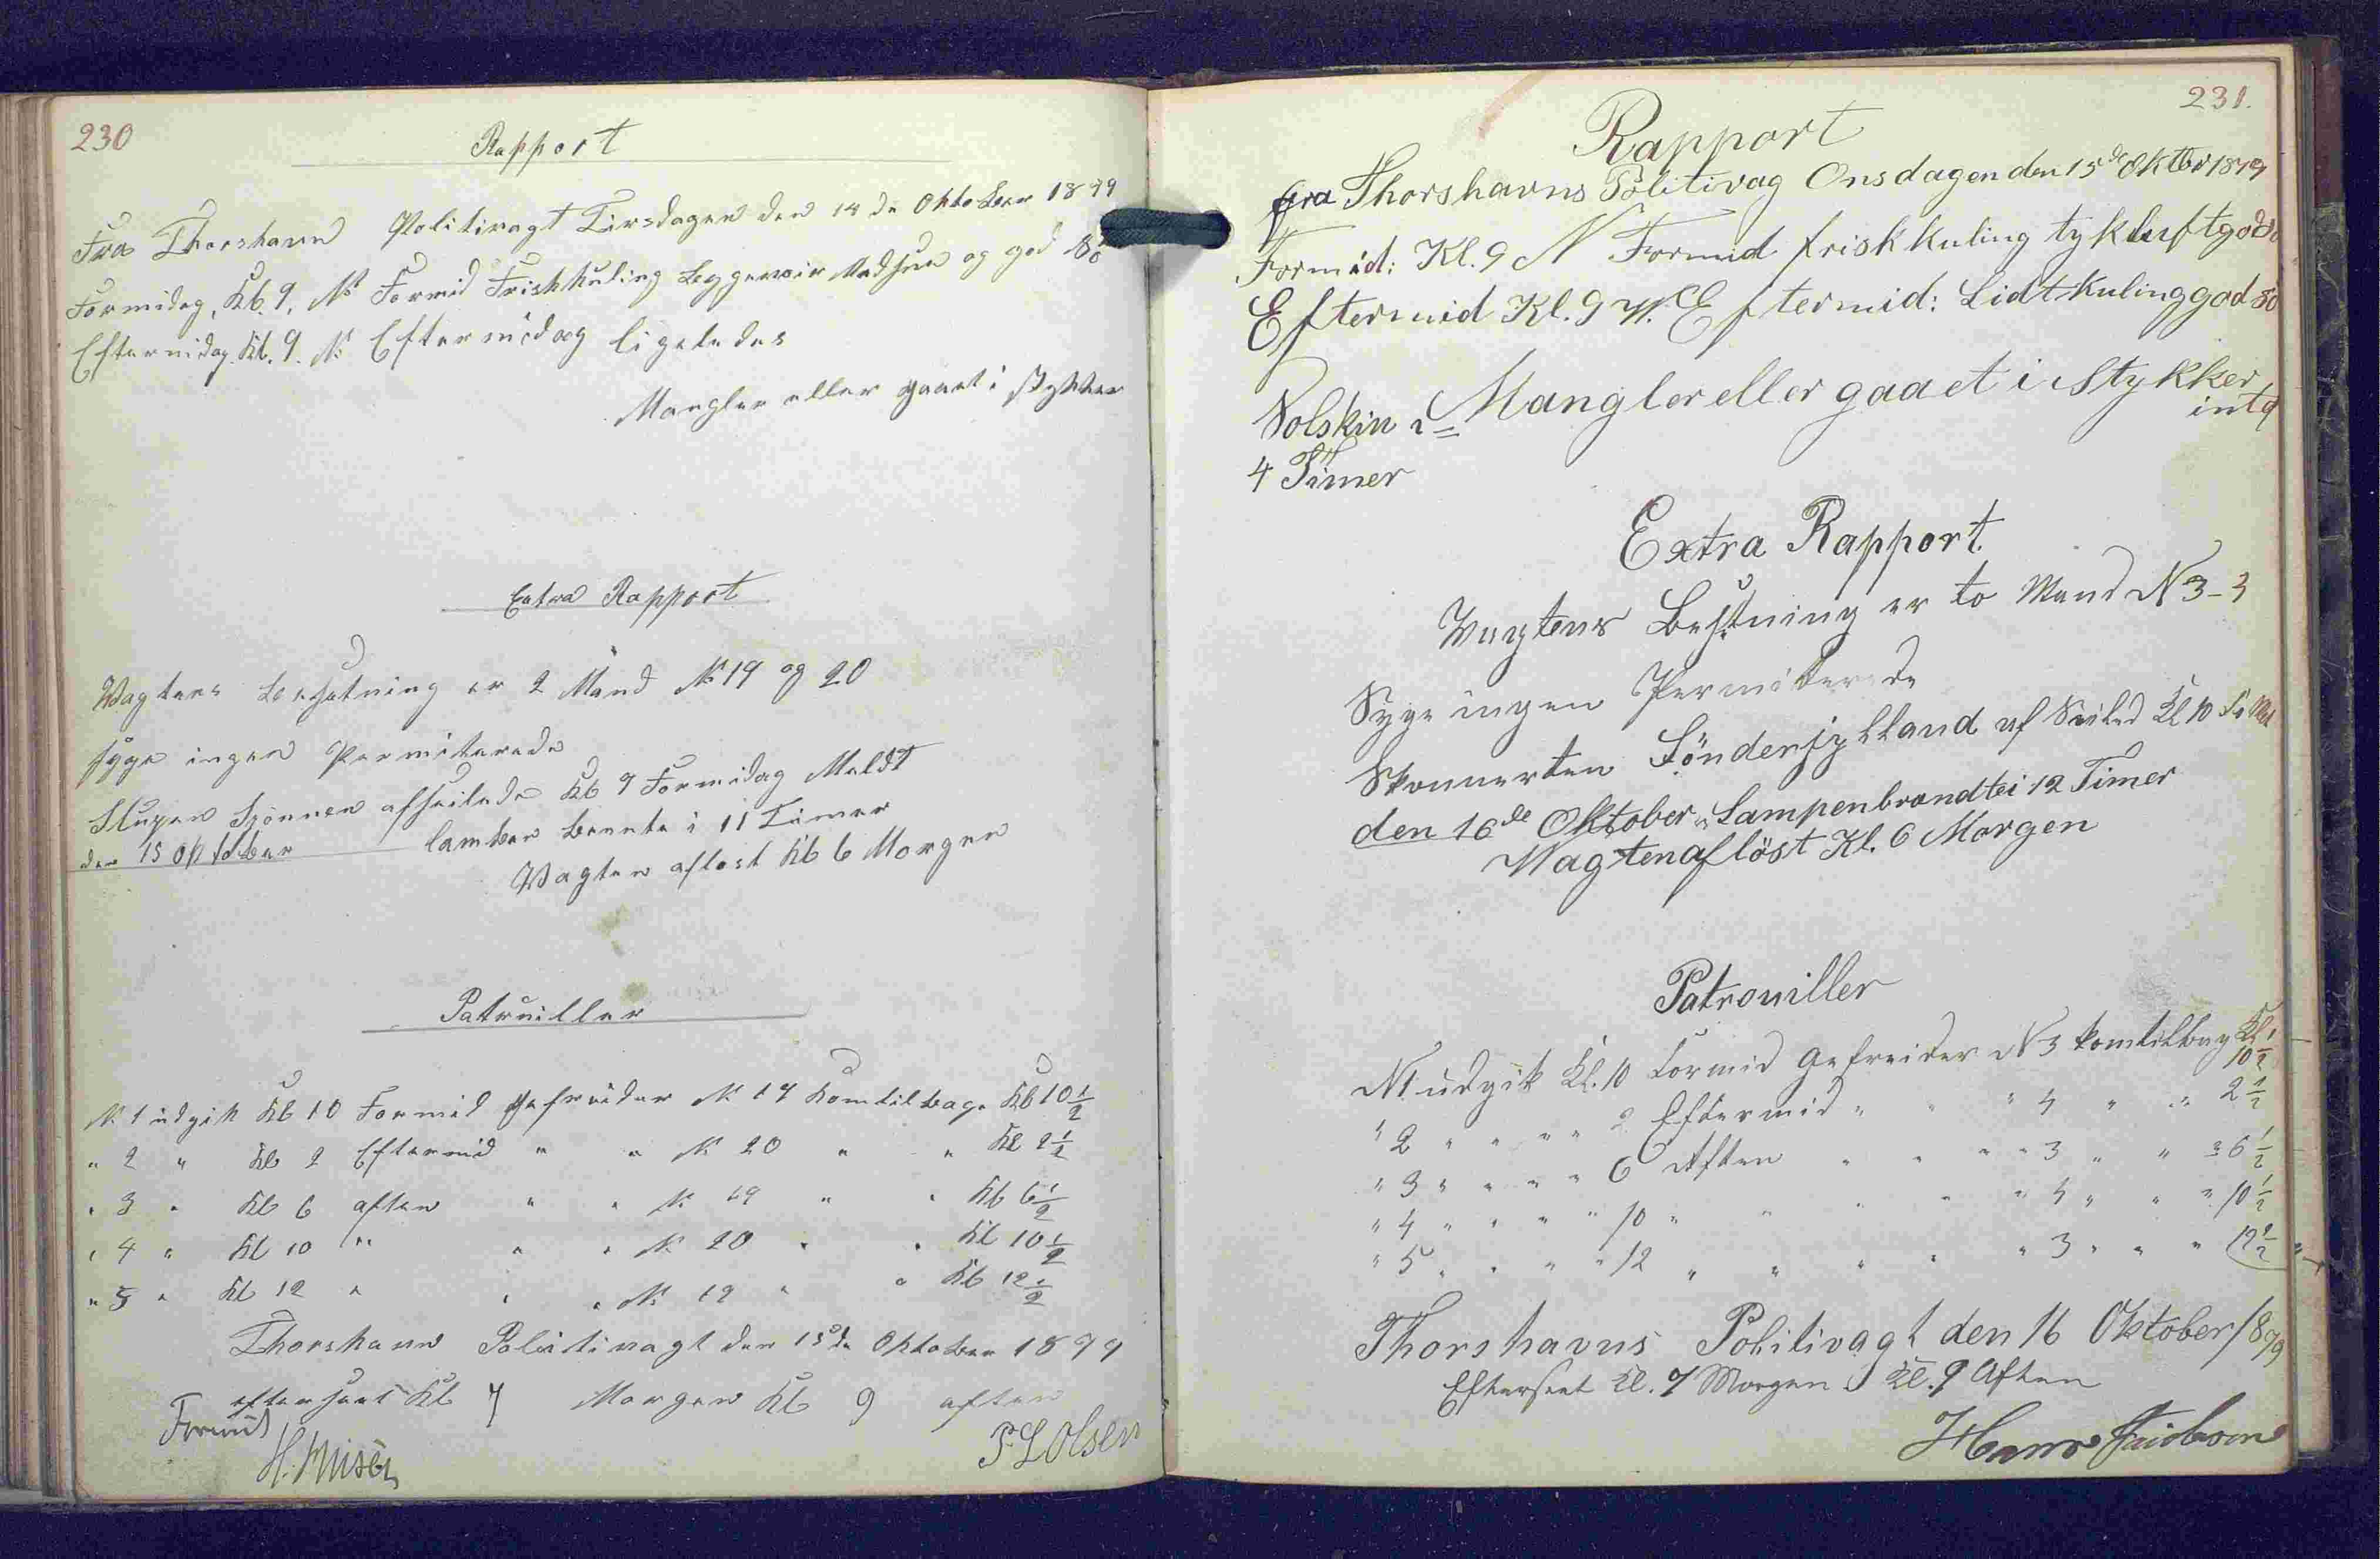 230
Rapport
Fra Thorshavn Politivagt Tirsdagen den 14 de Oktober 1879
Formidag, Kl. 9. N Formid Friskkuling og god
Eftermidag Kl. 9. N Eftermidag ligeledes
Mangler eller gaaet i stykker
Extra Rapport
Vagtens besetning er 2 Mand N 19 og 20
syge ingen Permiterede
Slupen afseilede Kl 9 Formidag Meldt
den 15 Oktober lamben brente i 11 Timer
Vagten aflost Kl 6 Morgen
Patruiller
N. 1 udgik Kl 10 Formid Gefreider N. 19 komtilbage Kl 10 1/2
" 2 " Kl 2 Eftermid " " N 20 " " Kl 2 1/2
" 3 " Kl 6 aften " " N. 19 " " Kl 6 1/2
" 4 " Kl 10 " " " N. 20 " " Kl 10 1/2
" 5 " Kl 12 " " " N. 19 " " Kl 12 1/2
Thorshavn Politivagt den 15 de Oktober 1879
efterseet Kl 7 Morgen Kl 9 aften
P L Olsen
231.
Rapport
fra Thorshavns Politivag Onsdagen den 15de Oktbr 1879
Formid: Kl. 9 N Formid frisk kuling tykluft god So
Eftermid Kl. 9 N. Eftermid: Lidt Kuling god So
Solskin i = Mangler eller gaaet i Stykker
intq
4 Timer
Extra Rapport
Vagtens Besetning er to Mand N 3 - 4
Syge ingen Permiterede
Skonnerten Sönderjylland af Seiled Kl 10 Fo Md
den 16de Oktober " Lampen brandte i 12 Timer
Vagten aflöst Kl. 6 Morgen
Patrouiller
N1 udgik Kl. 10 Formid Gefreider N 3 komtilbag Kl
10 1/2
" 2 " " " " 2 Eftermid " " " 4 " " " 2 1/2
" 3 " " " " 6 Aften " " " " 3 " " " 6 1/2
" 4 " " " " 10 " " " " " 4 " " " 10 1/2
" 5 " " " " 12 " " " " " 3 " " " 12 1/2 "
Thorshavns Politivagt den 16 Oktober 1879
Efterseet Kl. 7 Morgen Kl. 9 Aften
Hans Jacobsen